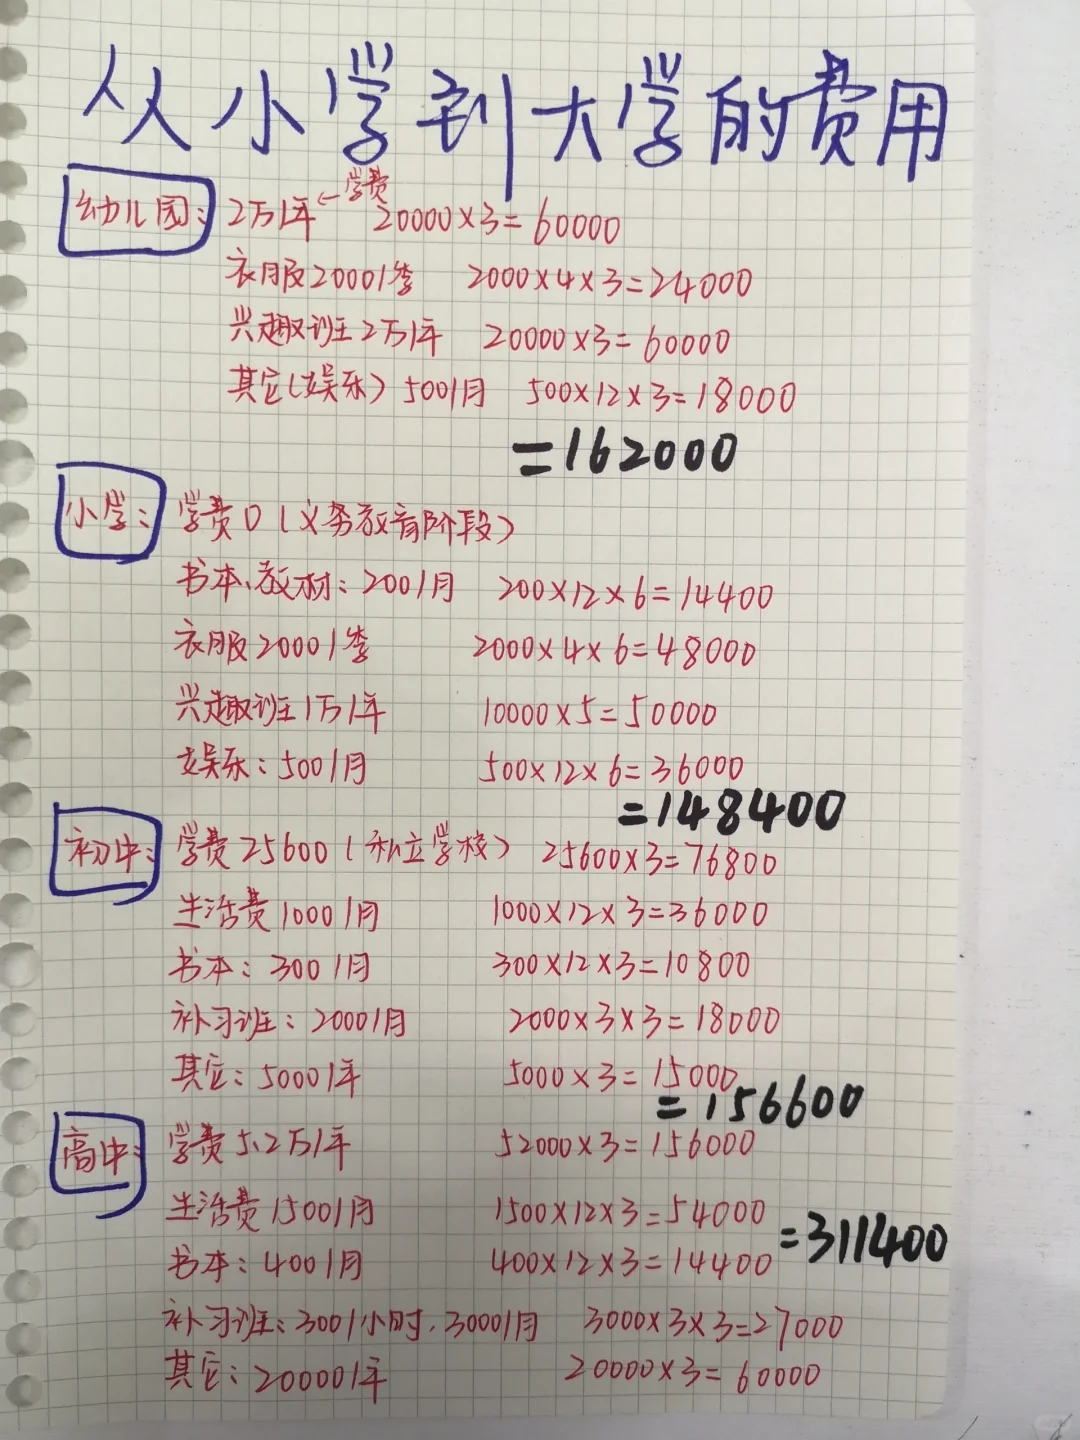 从小学到大学的费用
幼儿园: 2万/年 ←学费 20000×3=60000
衣服2000/季 2000×4×3=24000
兴趣班2万/年 20000×3=60000
其它(娱乐) 500/月 500×12×3=18000
=162000
小学: 学费0(义务教育阶段)
书本、教材: 200/月 200×12×6=14400
衣服2000/季 2000×4×6=48000
兴趣班1万/年 10000×5=50000
娱乐: 500/月 500×12×6=36000
=148400
初中: 学费25600(私立学校) 25600×3=76800
生活费1000/月 1000×12×3=36000
书本: 300/月 300×12×3=10800
补习班: 2000/月 2000×3×3=18000
其它: 5000/年 5000×3=15000
=156600
高中: 学费5.2万/年 52000×3=156000
生活费1500/月 1500×12×3=54000
=311400
书本: 400/月 400×12×3=14400
补习班: 300/小时、3000/月 3000×3×3=27000
其它: 20000/年 20000×3=60000